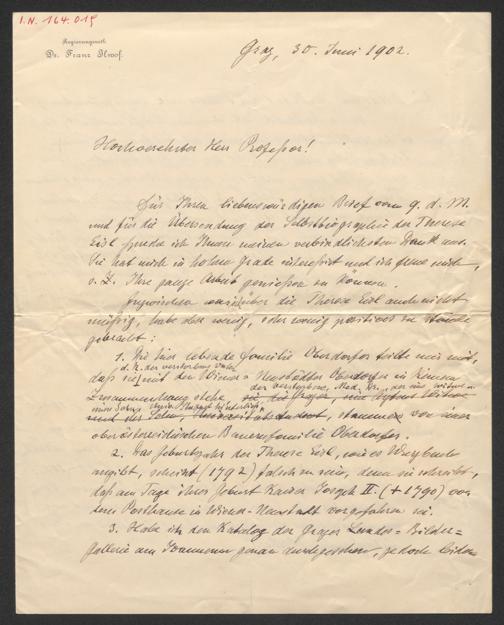 I.N. 164.015
Regierungsrath
Dr. Franz Ilwof.
Graz, 30. Juni 1902.
Hochverehrter Herr Professor!
Für Ihren liebenswürdigen Brief vom 9. d. M.
und für die Übersendung der Selbstbiographie der Therese
Eisl spreche ich Ihnen meinen verbindlichsten Dank aus.
Sie hat mich in hohem Grade interessirt und ich freue mich,
s. Z. Ihre ganze Arbeit geniessen zu können.
Inzwischen war ich über die Therese Eisl auch nicht
müssig, habe aber wenig, sehr wenig positives zu Stande
gebracht:
1. Die hier lebende Familie Oberdorfer teilte mir mit,
daß sie mit den Wiener-Neustädter Oberdorfer in keinem
Zusammenhang stehe,
der verstorbene, Med. Dr.,
von einer
oberösterreichischen Bauernfamilie Oberdorfer.
2. Das Geburtsjahr der Therese Eisl, wie es Wurzbach
angibt, scheint (1792) falsch zu sein, denn sie schreibt,
daß am Tage ihrer Geburt Kaiser Joseph II. († 1790) vor
dem Posthause in Wiener-Neustadt vorgefahren sei.
3. Habe ich den Katalog der Grazer Landes-Bilder-
Gallerie am Joanneum genau durchgesehen, jedoch leider